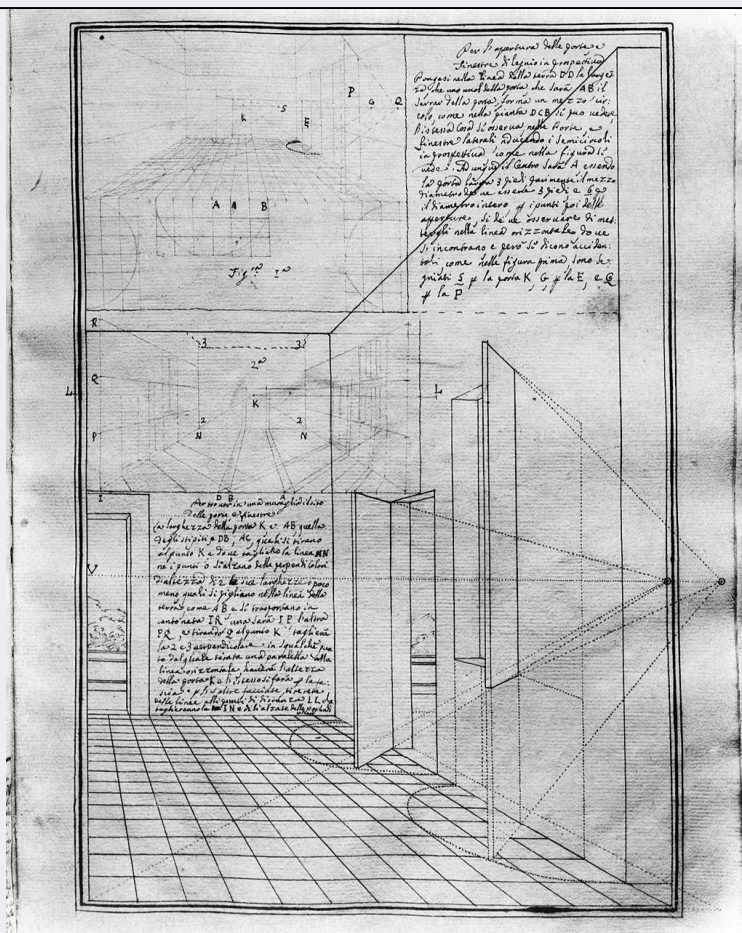 Per l'apertura delle porte e
finestre di legnio in prospettiva
Pongasi nella linea della terra DD la largez
za che uno vuol della porta, che sarà AB il
serrar della porta, forma un mezzo cir:
colo, come nella pianta DCB si puo vedere
l'istessa cosa si osserva nelle Porte, e
finestre laterali riducendo i semicircoli
in prospettiva come nella figura si
vede. il Centro sarà A essendo
la porta larga 3 piedi parimente il mezzo
diametro deve essere 3 piedi e 6 
il diametro intero i punti poi delle
apperture, si deve osservare di met:
tergli nella linea orizzontale dove
si incontrano e però si dicono acciden:
tali come nelle figura prima sono se
gniati S la porta K, G la E, e Q
la P
K S E P G Q
A 4 B
Fig.ra 1a
R
3 3
2a
Q
L K L
2 2
P N N
I D B A
Per trovar in una muraglia il sito
delle porte e finestre
La larghezza della porta K e AB quella
degli stipiti DB, AC, quali si tirano
al punto K e dove tagliano la linea NN
ne i punti o si alzano delle perpendicolari
larghezze o poco
meno quali si pigliano nella linea della
terra come AB e si trasportano in
cantonata IR una sarà IP l'altra
PQ, e tirando Q al punto K taglierà
la 2 e 3 perpendicolare in qualche pun
to dal quale tirata una paralella alla
linea orizzontale haverà l'altezza
della porta K e l'istesso si farà
altre facciate, tirate
delle linee alli punti di distanza LL che
taglieranno la IN e di li alzate delle
V